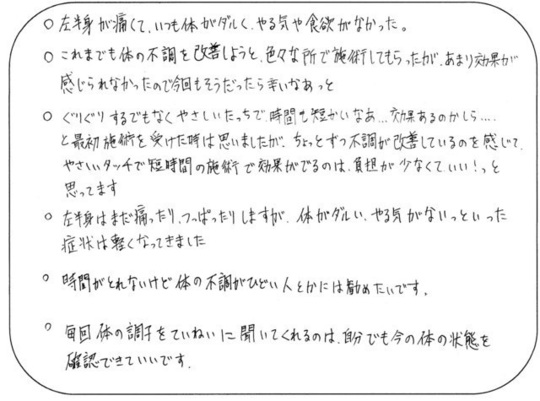 ○ 左半身が痛くて、いつも体がダルく、やる気や食欲がなかった。
○ これまでも体の不調を改善しようと、色々な所で施術してもらったが、あまり効果が
感じられなかったので今回もそうだったら辛いなあっと
○ ぐりぐりするでもなくやさしいたっちで、時間も短かいなあ…効果あるのかしら….
と最初施術を受けた時は思いましたが、ちょっとずつ不調が改善しているのを感じて、
やさしいタッチで短時間の施術で効果がでるのは、負担が少なくていい!っと
思ってます
○ 左半身はまだ痛ったり、つっぱったりしますが、体がダルい、やる気がないっといった
症状は軽くなってきました
○ 時間がとれないけど体の不調がひどい人とかには勧めたいです。
○ 毎回体の調子をていねいに聞いてくれるのは、自分でも今の体の状態を
確認できていいです.